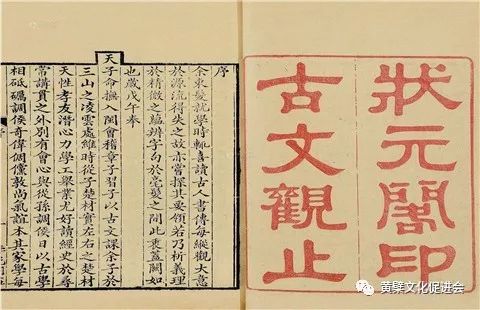 狀元閣印
古文觀止
序
余束髮就學時輒喜讀古人書傳每縱觀大意
於源流得失之故亦嘗探其要領若乃析義理
於精微之蘊辨字句於毫髮之間此衷蓋闕如
也歲戊午奉
天子命撫八閩會稽章子習子以古文課余子於
三山之凌雲處維時從子楚材實左右之楚材
天性孝友潛心力學工舉業尤好讀經史於尋
常講貫之外別有會心與從孫調侯日以古學
相砥礪調侯奇偉倜儻敦尚氣誼本其家學每
黄檗文化促进会